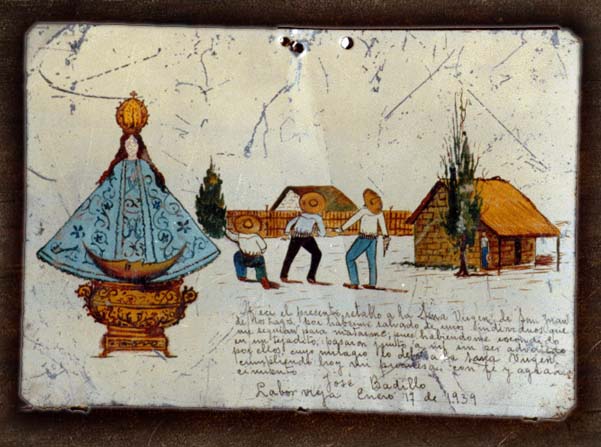 el presente retablo a la Sma Virgen de San Juan
de los Lagos, por haberme salvado de unos yndividuos que
me seguian para matarme; pues habiendome escondido
en un tejadito, pasaron junto a mi sin ser advertido
por ellos; cuyo milagro lo debo a la Sma Virgen
cumpliendo hoy mi promesa con fe y agrade
cimiento José Badillo
Labor vieja Enero 17 de 1939